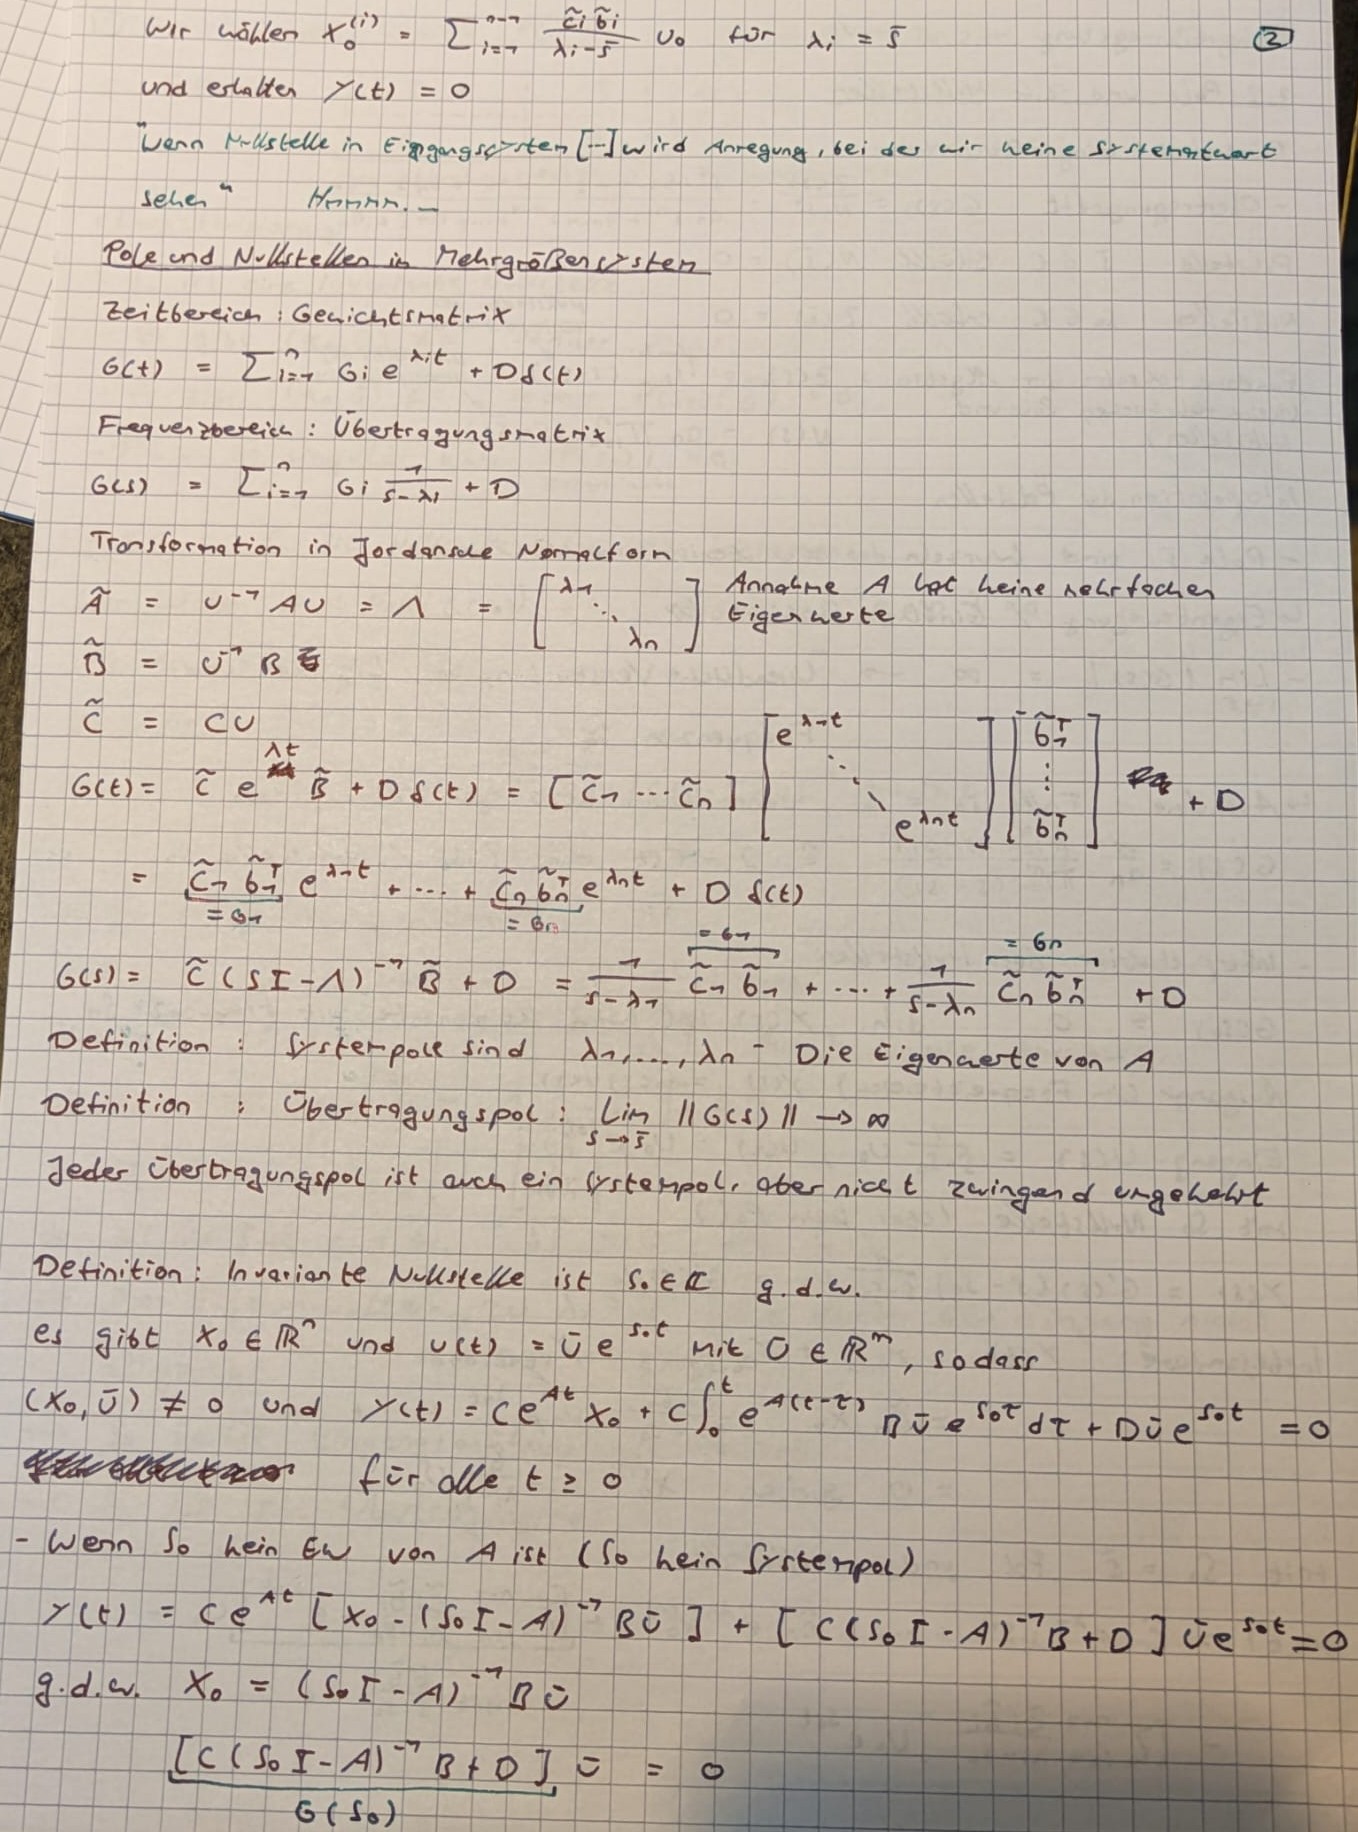 Wir wählen x₀⁽ⁱ⁾ = Σᵢ₌₁ⁿ⁻¹ c̃ᵢ b̃ᵢ / (λᵢ - s̄) U₀ für λᵢ = s̄ ②
und erhalten y(t) = 0
"Wenn Nullstelle in Eingangssystem [...] wird Anregung, bei der wir keine Systemantwort
sehen" Hmmm...
Pole und Nullstellen in Mehrgrößensystem
Zeitbereich: Gewichtsmatrix
G(t) = Σᵢ₌₁ⁿ Gᵢ e^{λᵢt} + D δ(t)
Frequenzbereich: Übertragungsmatrix
G(s) = Σᵢ₌₁ⁿ Gᵢ 1/(s-λᵢ) + D
Transformation in Jordansche Normalform
Ã = U⁻¹ A U = Λ = [λ₁ ⋱ λₙ] Annahme A hat keine mehrfachen Eigenwerte
B̃ = U⁻¹ B
C̃ = C U
G(t) = C̃ e^{Λt} B̃ + D δ(t) = [c̃₁ ... c̃ₙ] [e^{λ₁t} ⋱ e^{λₙt}] [b̃₁ᵀ ⋮ b̃ₙᵀ] + D
= c̃₁ b̃₁ᵀ e^{λ₁t} + ... + c̃ₙ b̃ₙᵀ e^{λₙt} + D δ(t)
= G₁ = Gₙ
= G₁ = Gₙ
G(s) = C̃ (sI - Λ)⁻¹ B̃ + D = 1/(s-λ₁) c̃₁ b̃₁ + ... + 1/(s-λₙ) c̃ₙ b̃ₙᵀ + D
Definition: Systempole sind λ₁, ..., λₙ - Die Eigenwerte von A
Definition: Übertragungspol: Lim_{s→s̄} ||G(s)|| → ∞
Jeder Übertragungspol ist auch ein Systempol, aber nicht zwingend umgekehrt
Definition: Invariante Nullstelle ist s₀ ∈ ℂ g.d.w.
es gibt x₀ ∈ ℝⁿ und u(t) = ū e^{s₀t} mit ū ∈ ℝᵐ, sodass
(x₀, ū) ≠ 0 und y(t) = C e^{At} x₀ + C ∫₀ᵗ e^{A(t-τ)} B ū e^{s₀τ} dτ + D ū e^{s₀t} = 0
für alle t ≥ 0
- Wenn s₀ kein EW von A ist (s₀ kein Systempol)
y(t) = C e^{At} [x₀ - (s₀I - A)⁻¹ B ū] + [C (s₀I - A)⁻¹ B + D] ū e^{s₀t} = 0
g.d.w. x₀ = (s₀I - A)⁻¹ B ū
[C (s₀I - A)⁻¹ B + D] ū = 0
G(s₀)